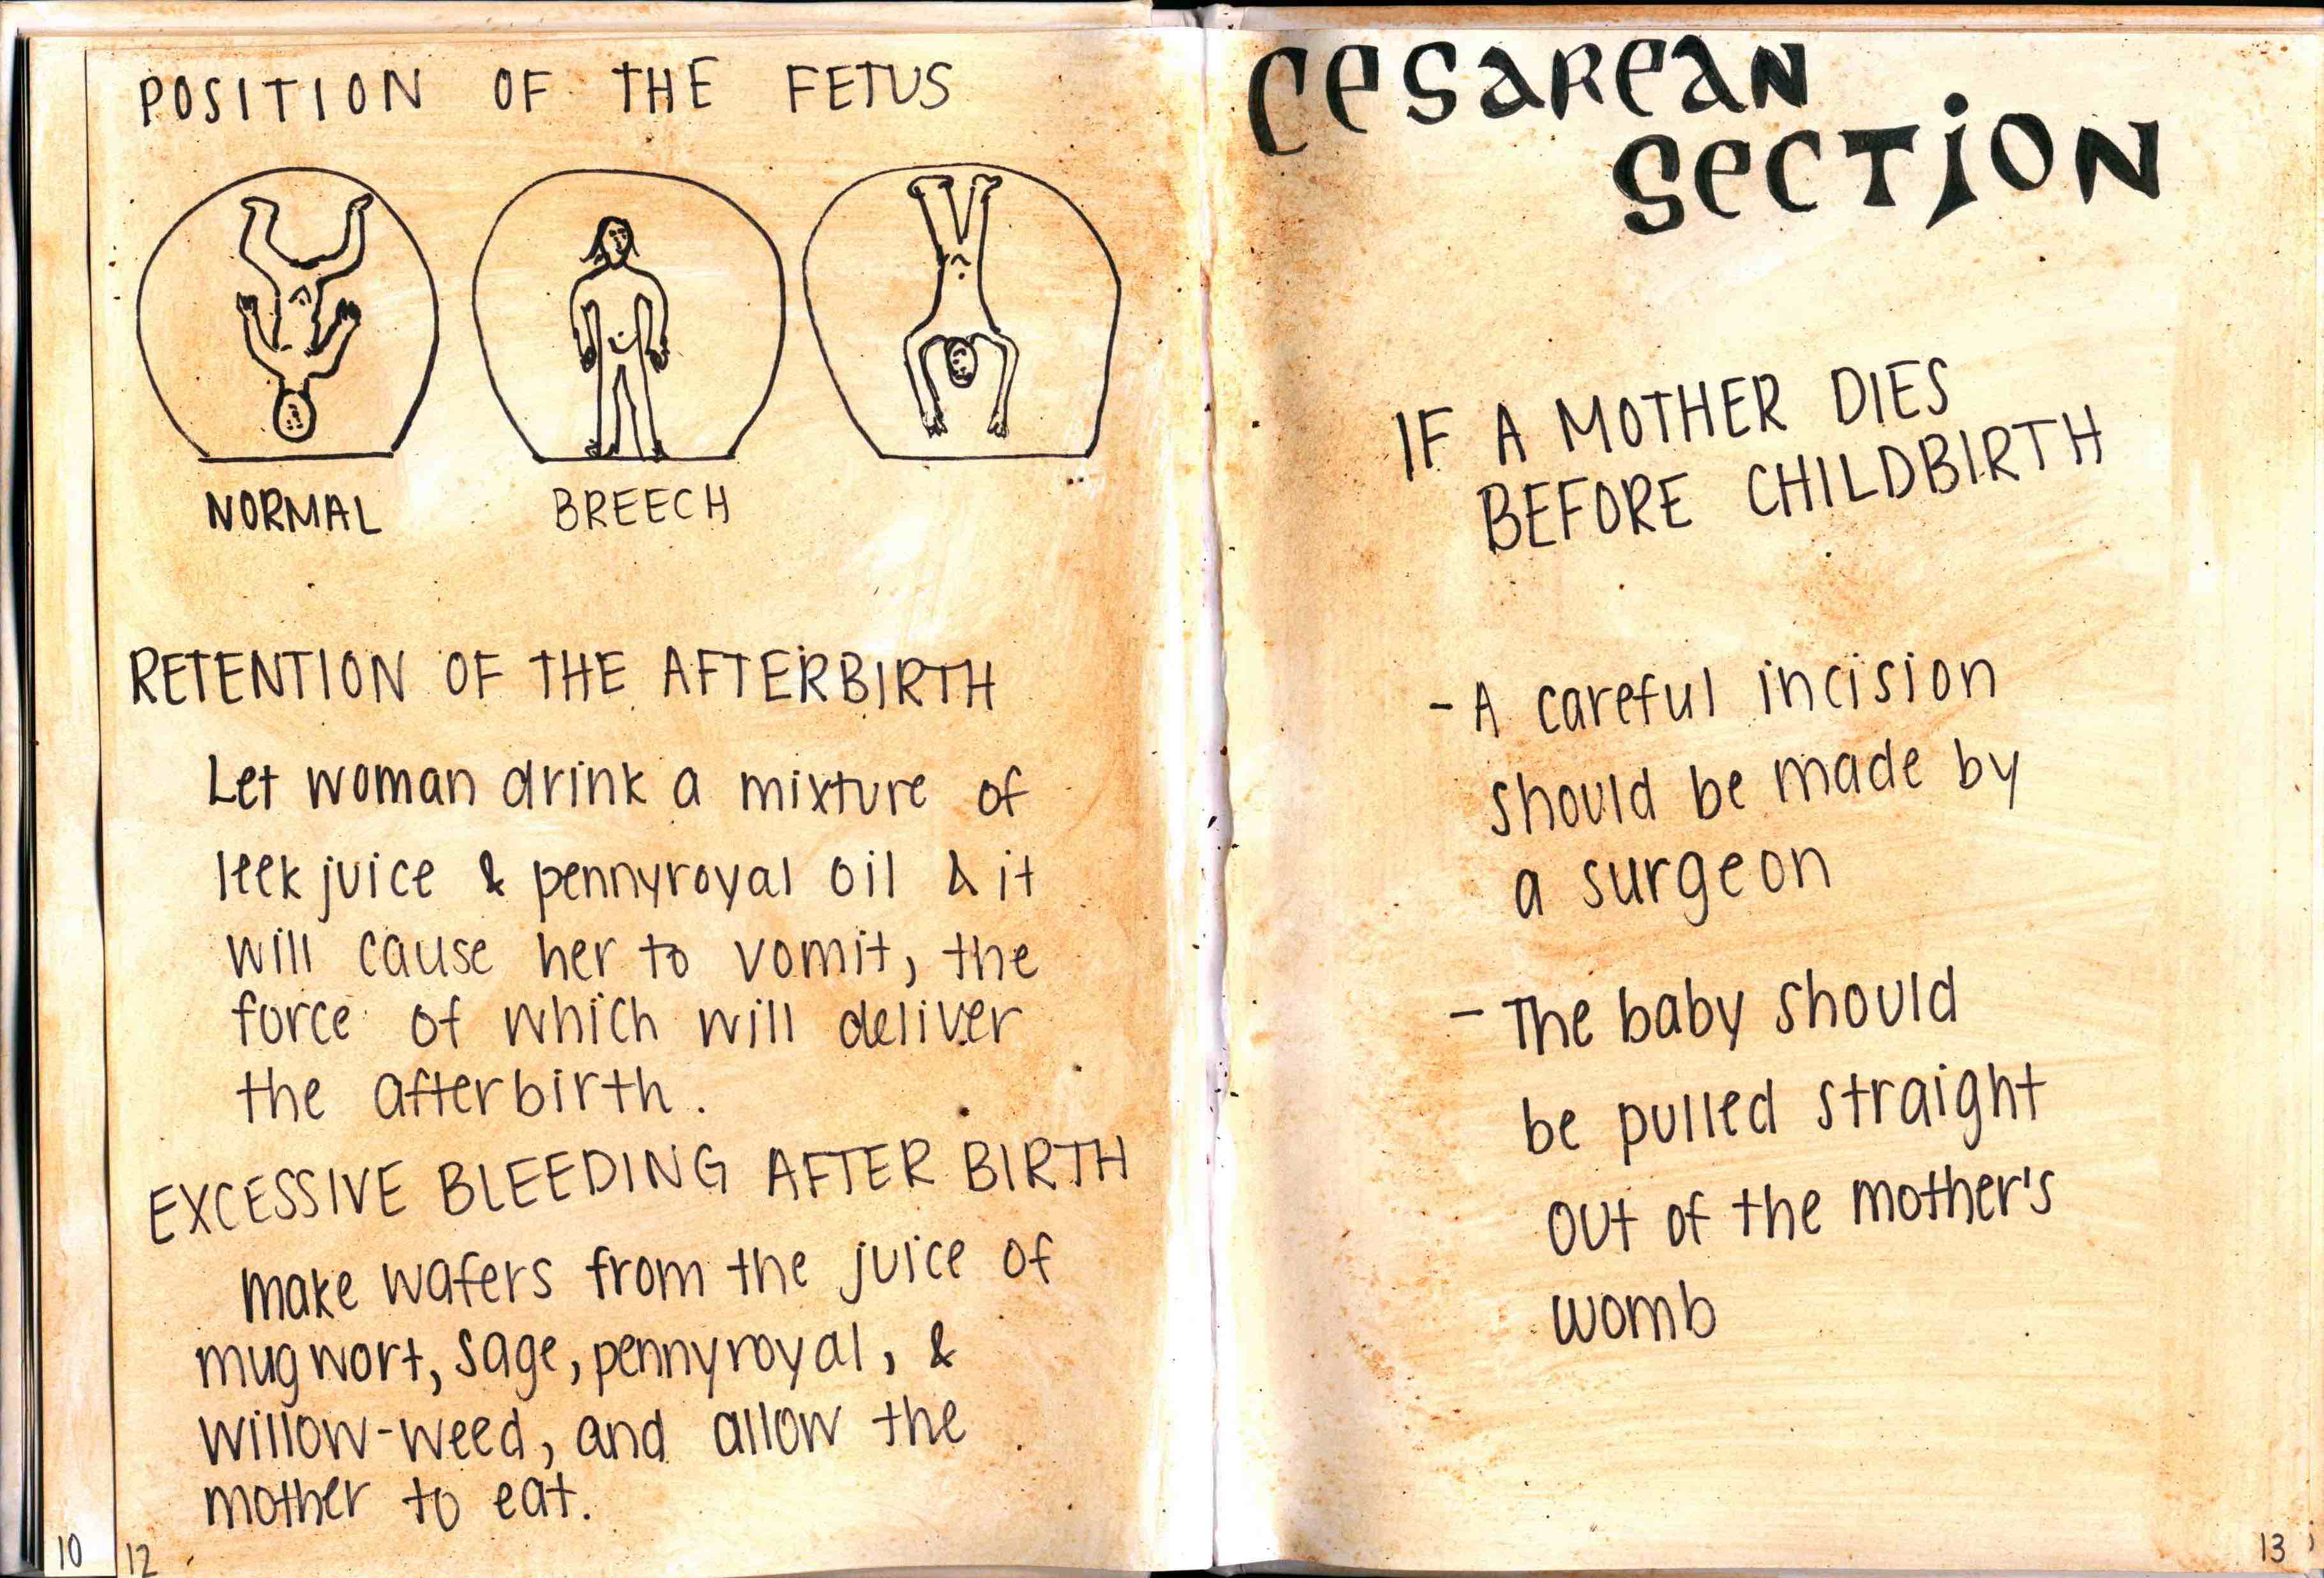 POSITION OF THE FETUS
NORMAL
BREECH
RETENTION OF THE AFTERBIRTH
Let woman drink a mixture of
leek juice & pennyroyal oil & it
will cause her to vomit, the
force of which will deliver
the afterbirth.
EXCESSIVE BLEEDING AFTER BIRTH
make wafers from the juice of
mugwort, sage, pennyroyal, &
willow-weed, and allow the
mother to eat.
10
12
CESAREAN
SECTION
IF A MOTHER DIES
BEFORE CHILDBIRTH
- A careful incision
should be made by
a surgeon
- The baby should
be pulled straight
out of the mother's
womb
13